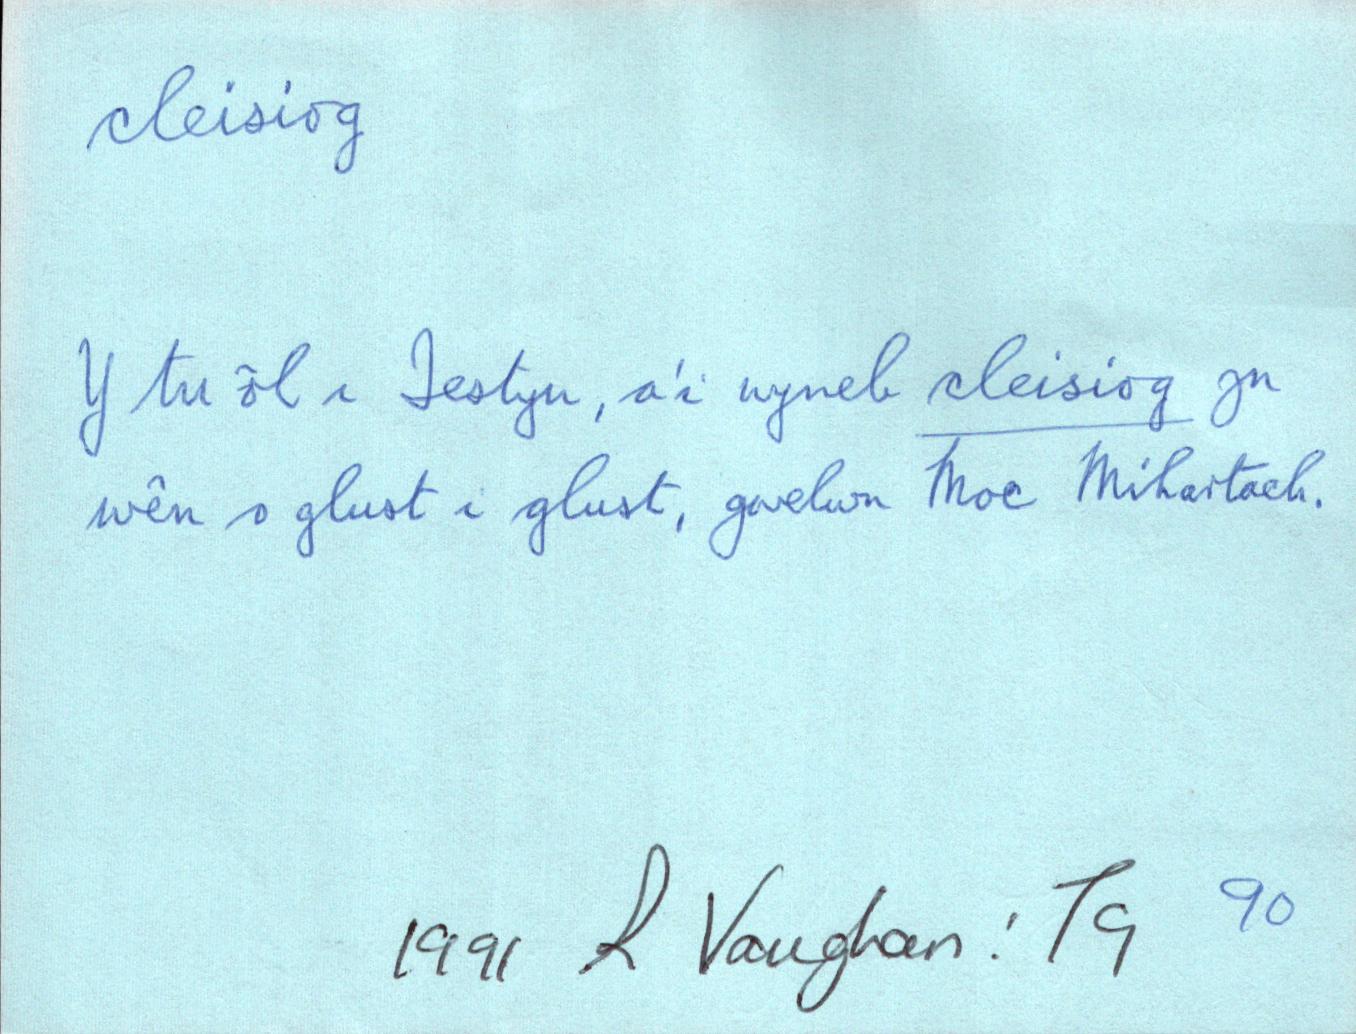 cleisiog
Y tu ôl i Iestyn, a'i wyneb cleisiog yn
wên o glust i glust, gwelwn Moc Mihartach.
1991 R Vaughan: TG 90